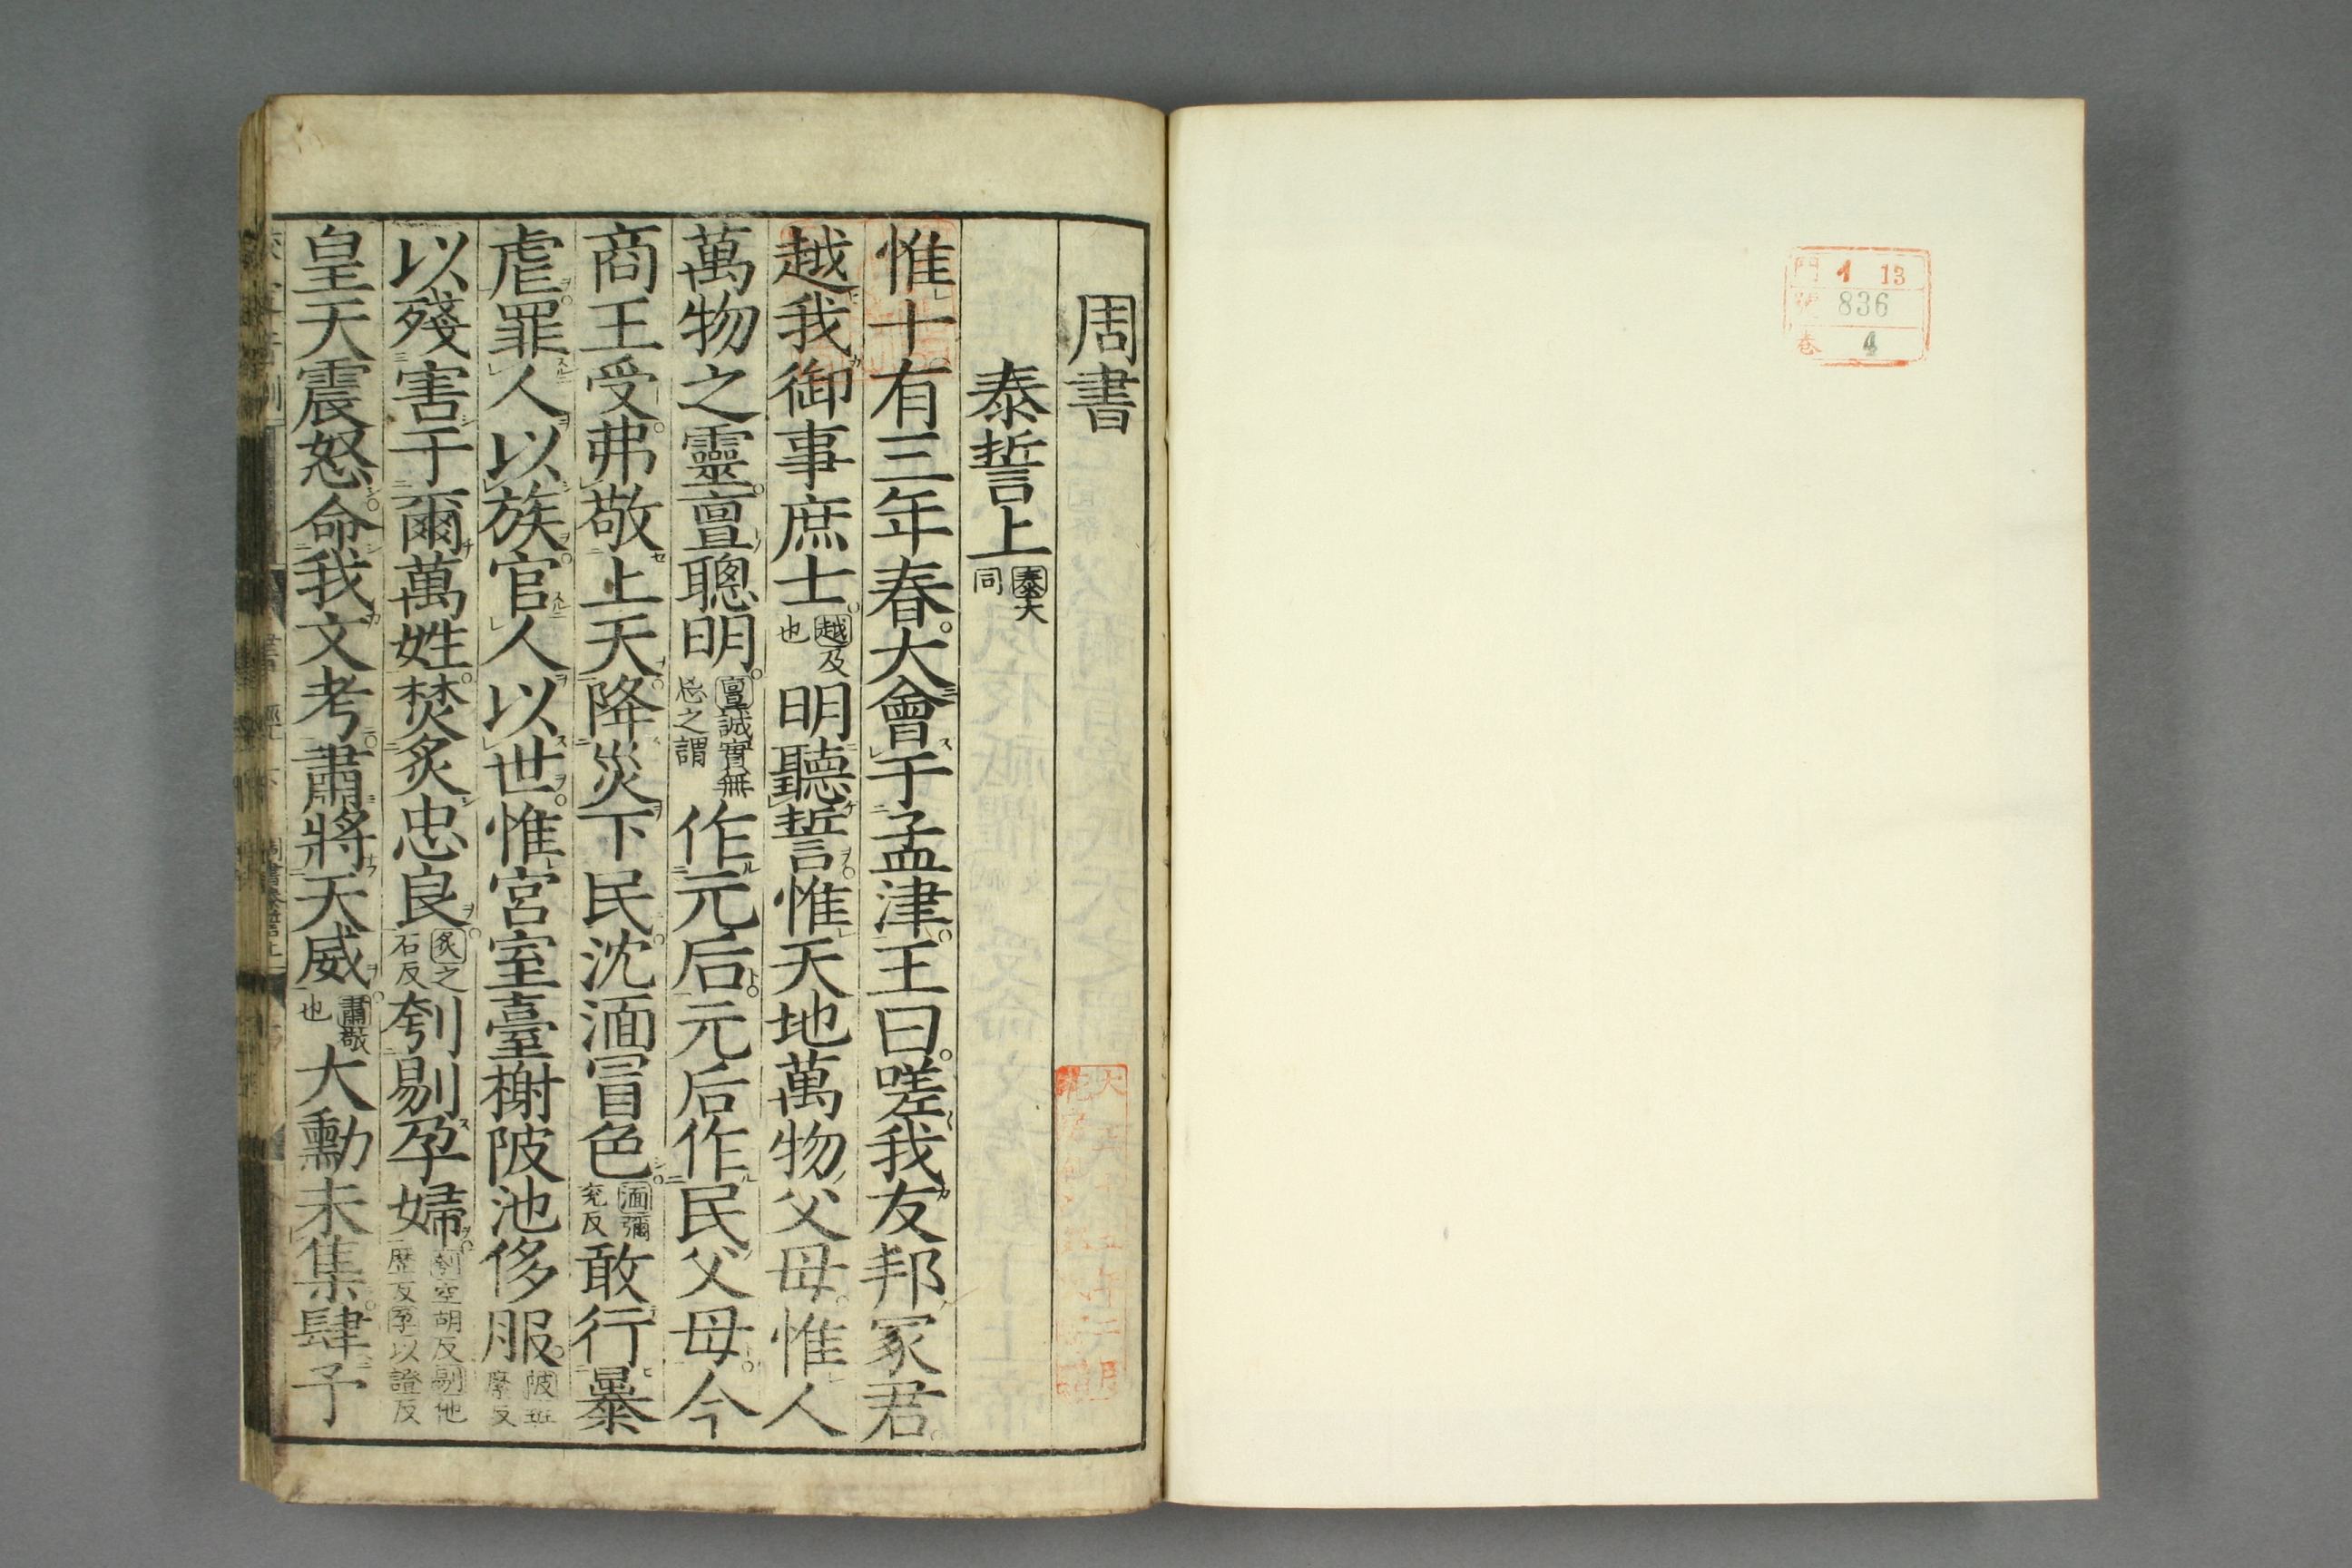 門 1 13
號 836
卷 4
周書
泰誓上 泰大同
惟十有三年春大會于孟津王曰嗟我友邦冢君
越我御事庶士 越及也 明聽誓惟天地萬物父母惟人
萬物之靈亶聰明 亶誠實無忌之謂 作元后元后作民父母今
商王受弗敬上天降災下民沈湎冒色 湎彌兖反 敢行暴
虐罪人以族官人以世惟宮室臺榭陂池侈服 陂班糜反
以殘害于爾萬姓焚炙忠良 炙之石反 刳剔孕婦 刳空胡反剔他歷反孕以證反
皇天震怒命我文考肅將天威 肅敬也 大勳未集肆予